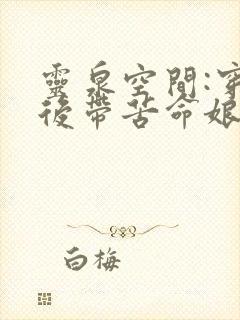 靈泉空間:穿
後帶苦命娘
白梅